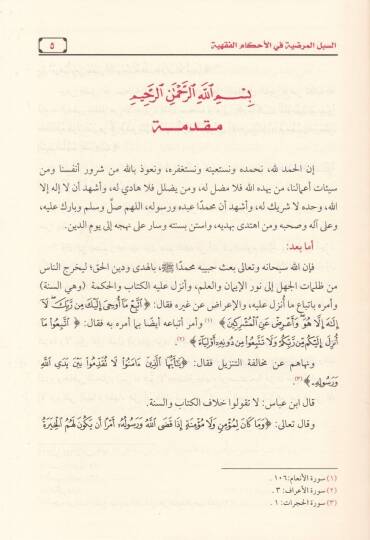 السبل المرضية في الأحكام الفقهية
٥
بِسْمِ اللَّهِ الرَّحْمَٰنِ الرَّحِيمِ
مقدمة
إن الحمد لله، نحمده ونستعينه ونستغفره، ونعوذ بالله من شرور أنفسنا ومن
سيئات أعمالنا، من يهده الله فلا مضل له، ومن يضلل فلا هادي له، وأشهد أن لا إله إلا
الله، وحده لا شريك له، وأشهد أن محمدًا عبده ورسوله، اللهم صلِّ وسلم وبارك عليه،
وعلى آله وصحبه ومن اهتدى بهديه، واستن بسنته وسار على نهجه إلى يوم الدين.
أما بعد:
فإن الله سبحانه وتعالى بعث حبيبه محمدًا ﷺ، بالهدى ودين الحق؛ ليخرج الناس
من ظلمات الجهل إلى نور الإيمان والعلم، وأنزل عليه الكتاب والحكمة (وهي السنة)
وأمره باتباع ما أنزل عليه، والإعراض عن غيره فقال: ﴿اتَّبِعْ مَا أُوحِيَ إِلَيْكَ مِن رَّبِّكَ لَا
إِلَٰهَ إِلَّا هُوَ وَأَعْرِضْ عَنِ الْمُشْرِكِينَ﴾ (١) وأمر أتباعه أيضًا بما أمره به فقال: ﴿اتَّبِعُوا مَا
أُنزِلَ إِلَيْكُم مِّن رَّبِّكُمْ وَلَا تَتَّبِعُوا مِن دُونِهِ أَوْلِيَاءَ﴾ (٢).
ونهاهم عن مخالفة التنزيل فقال: ﴿يَا أَيُّهَا الَّذِينَ آمَنُوا لَا تُقَدِّمُوا بَيْنَ يَدَيِ اللَّهِ
وَرَسُولِهِ﴾ (٣).
قال ابن عباس: لا تقولوا خلاف الكتاب والسنة.
وقال تعالى: ﴿وَمَا كَانَ لِمُؤْمِنٍ وَلَا مُؤْمِنَةٍ إِذَا قَضَى اللَّهُ وَرَسُولُهُ أَمْرًا أَن يَكُونَ لَهُمُ الْخِيَرَةُ
(١) سورة الأنعام: ١٠٦.
(٢) سورة الأعراف: ٣.
(٣) سورة الحجرات: ١.